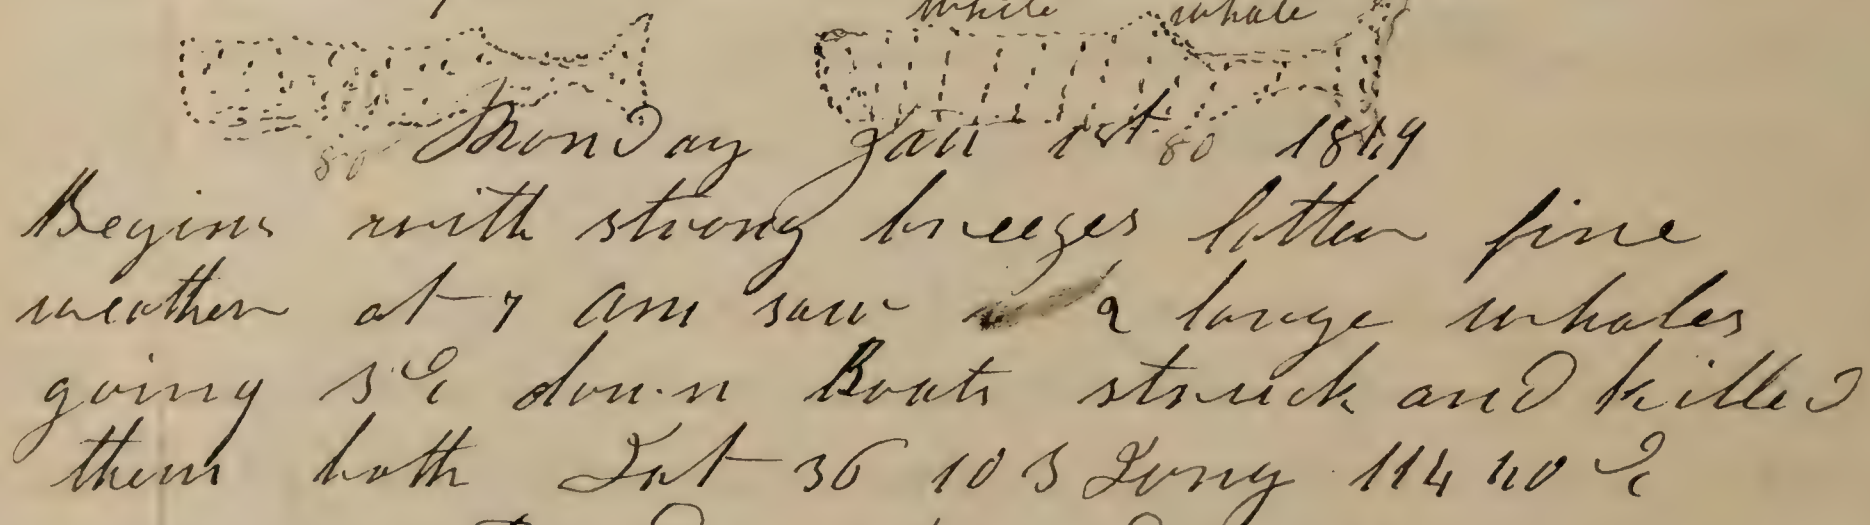 white whale
80 80
Monday Jan 1st 1849
Begins with strong breezes latter fine
weather at 7 am saw 2 large whales
going S E down Boats struck and killed
them both Lat 36 10 S Long 114 40 E